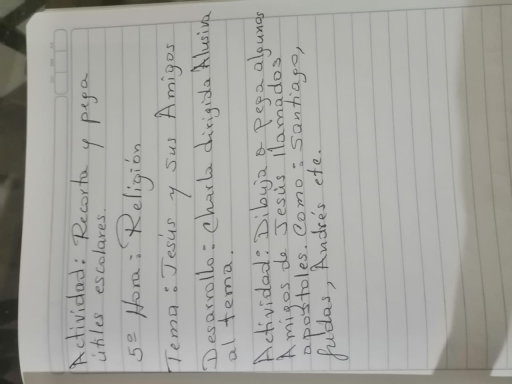 Actividad: Recorta y pega
útiles escolares.
5º Hora: Religión
Tema: Jesús y sus Amigos
Desarrollo: Charla dirigida Alusiva
al tema.
Actividad: Dibuja o Pega algunos
Amigos de Jesús llamados
apóstoles. Como: Santiago,
Judas, Andrés etc.